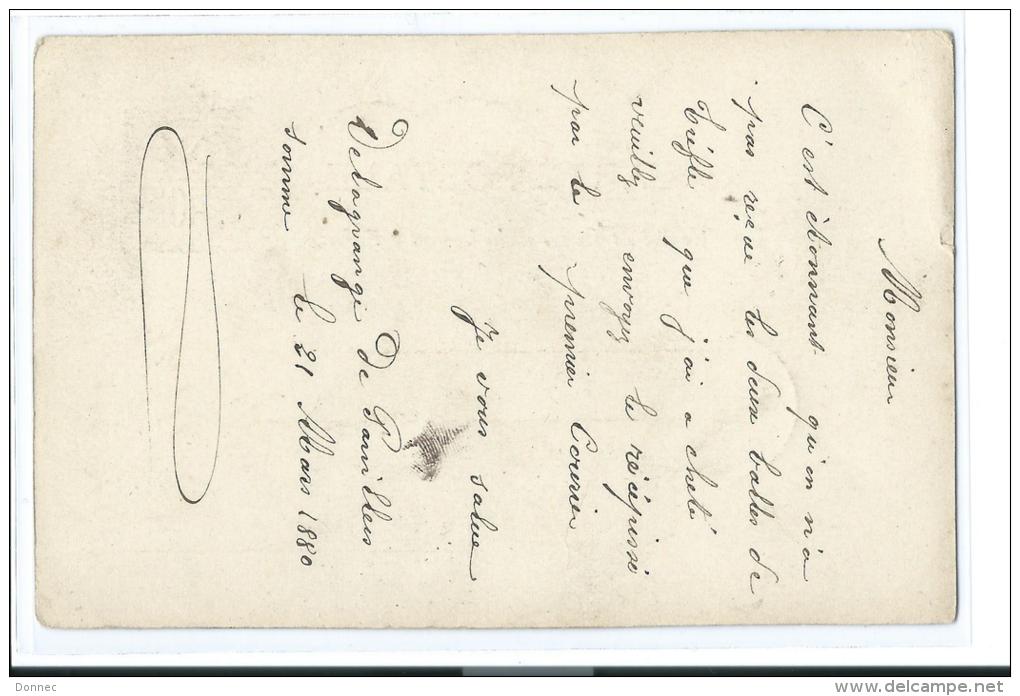 Monsieur
C'est étonnant qu'on n'a
pas reçue les deux balles de
trèfle que j'ai acheté
veuilley envoyez le récépissé
par le premier Courier
Je vous salue
Delagrange de Parvillers
somme le 21 Mars 1880
Donnec
www.delcampe.net